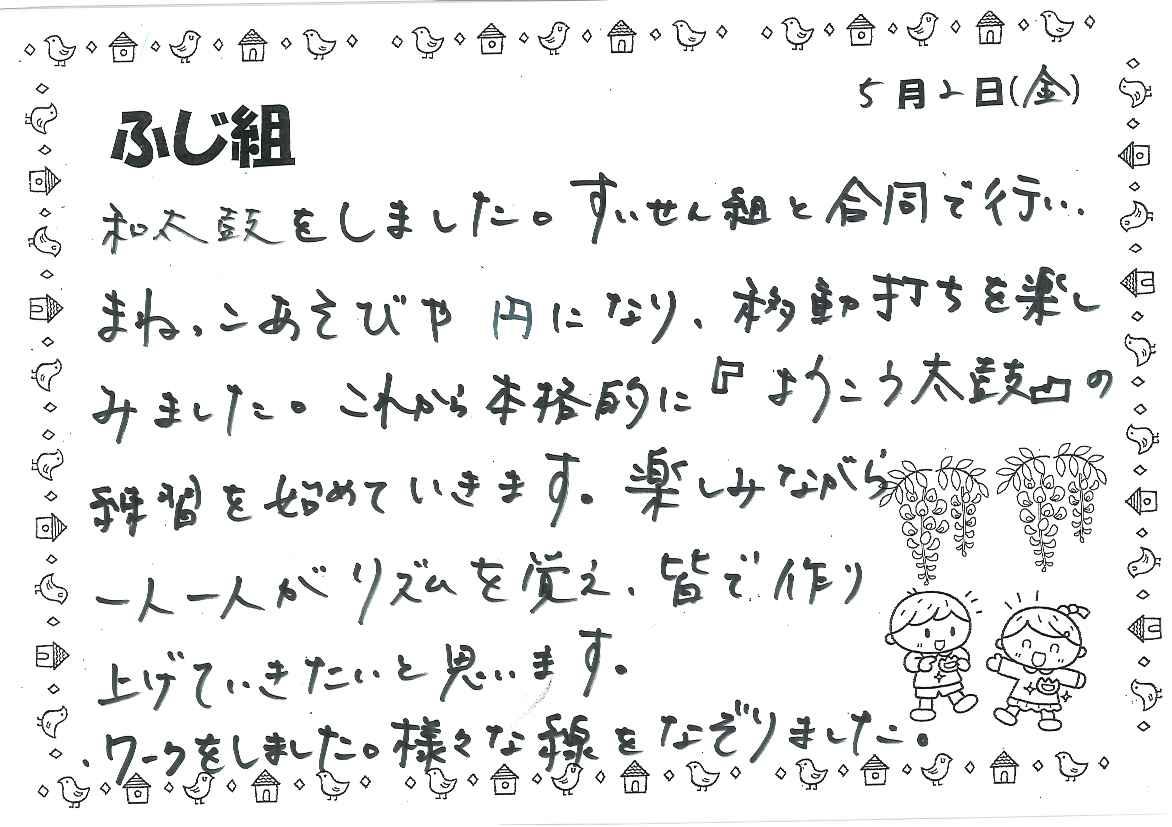 5月2日(金)
ふじ組
和太鼓をしました。すいせん組と合同で行い、
まねっこあそびや円になり、移動打ちを楽し
みました。これから本格的に『ようこう太鼓』の
練習を始めていきます。楽しみながら
一人一人がリズムを覚え、皆で作り
上げていきたいと思います。
・ワークをしました。様々な線をなぞりました。